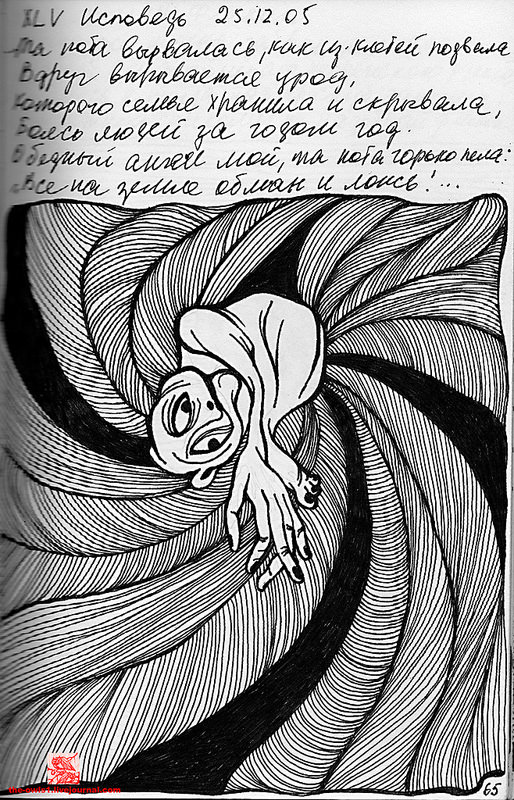 XLV Исповедь 25.12.05
Та нота вырвалась, как из клетей подвала
Вдруг вырывается урод,
Которого семье хранила и скрывала,
Боясь людей за годом год.
О бедный ангел мой, та нота горько пела:
"Все на земле обман и ложь!...
65